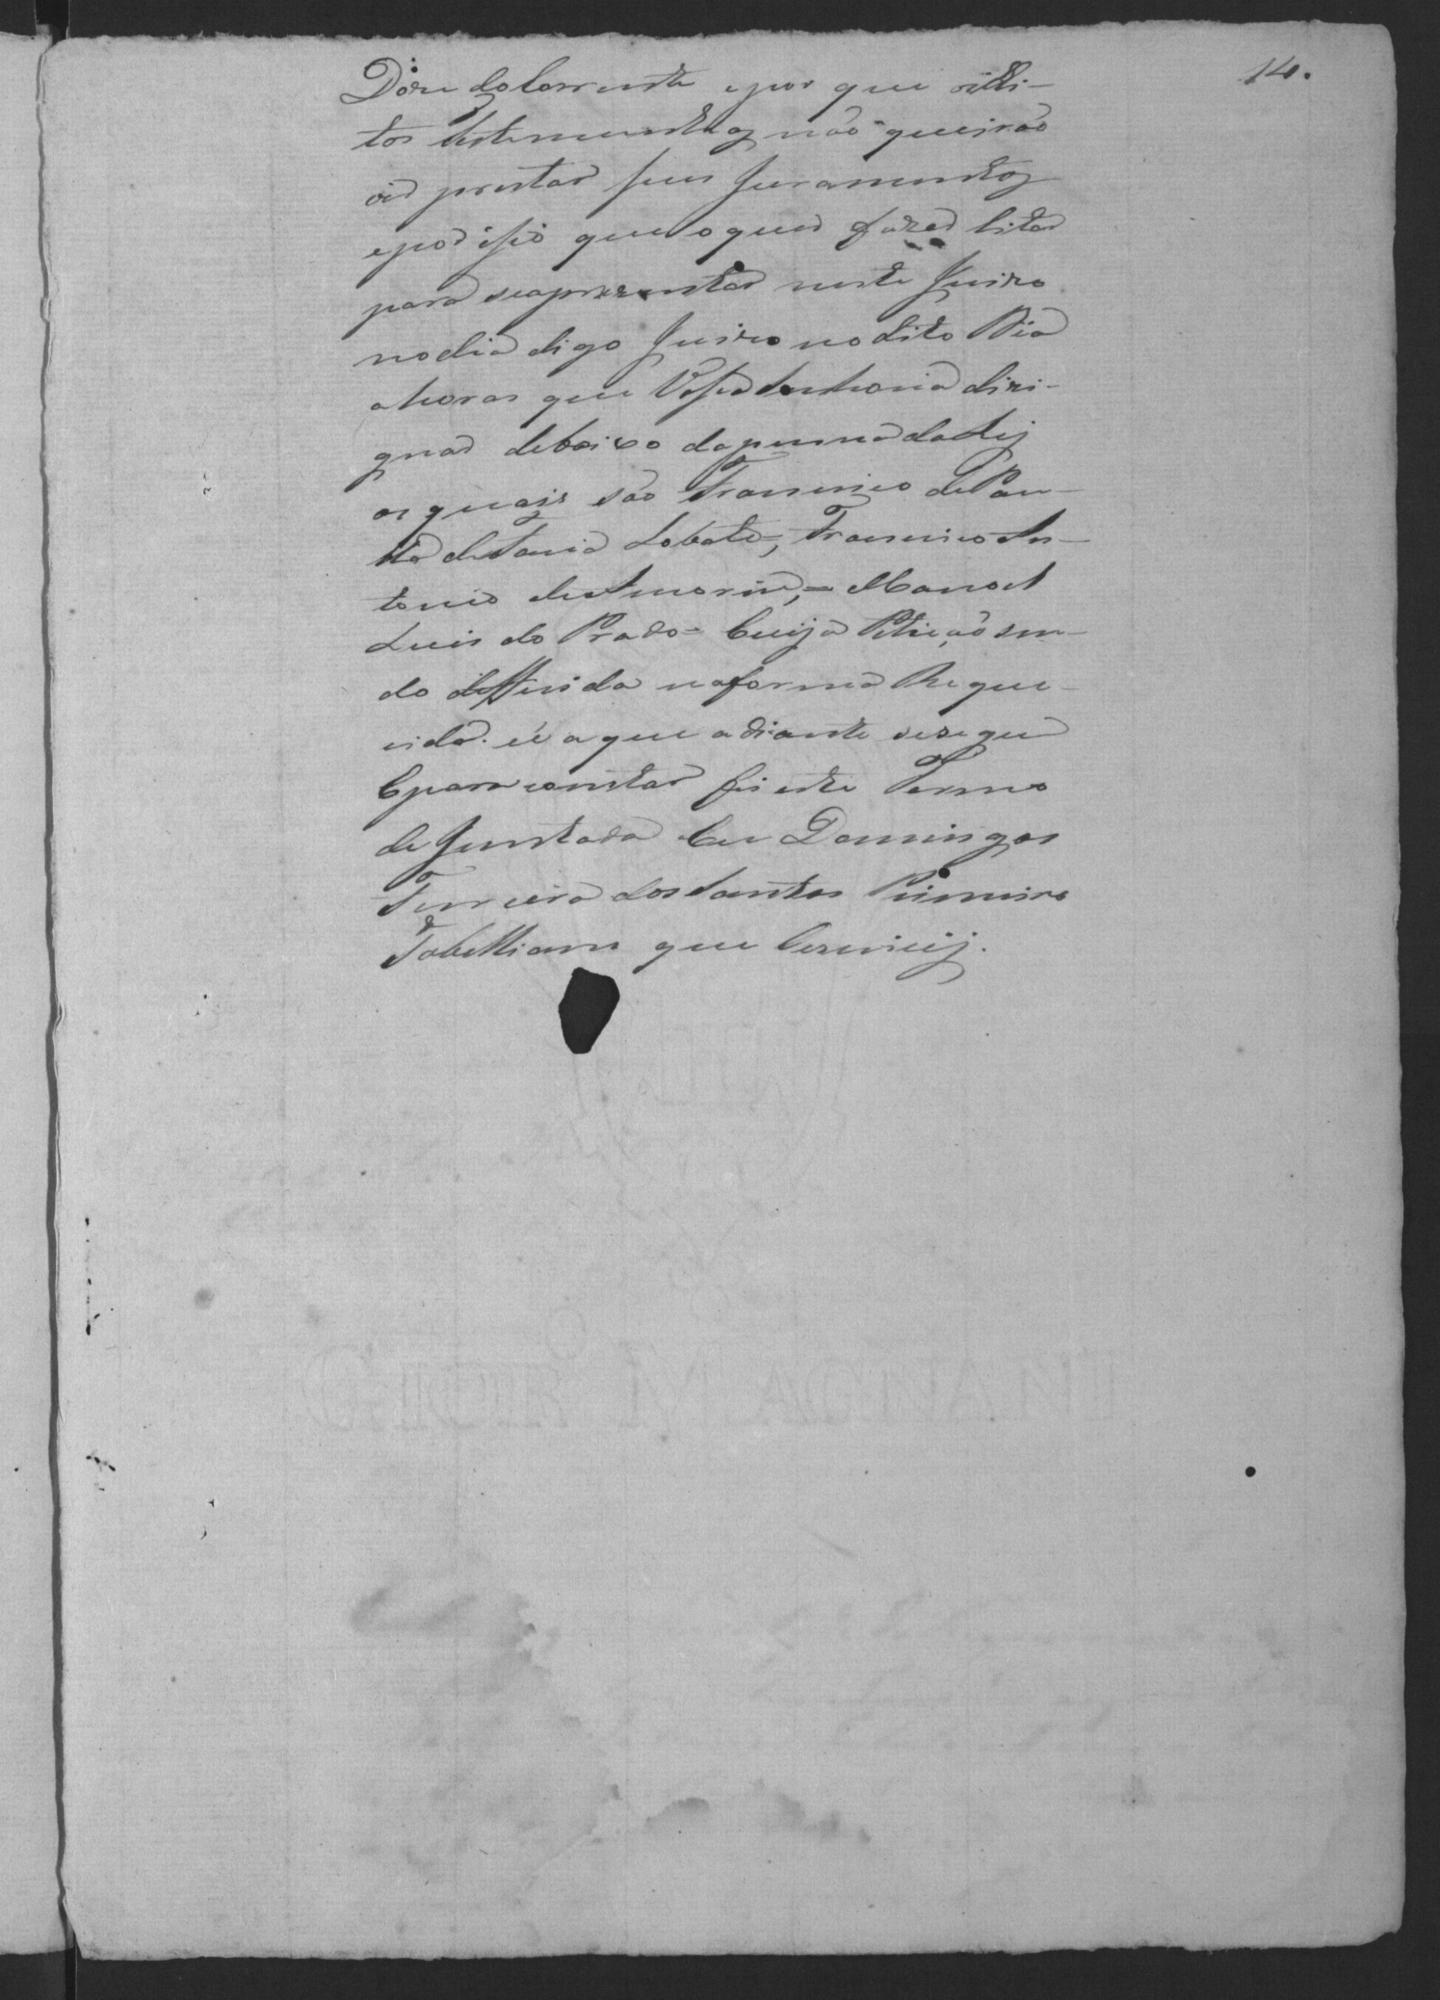 14.
Doze do Corrente epor que os di-
tos testemunhas não queirão
vir prestar seus Juramentos
epor isso que o quer fazer Citar
para se aprezentar neste Juizo
no dia digo Juizo no dito Dia
ahoras que Vossa Senhoria dizi-
gnar debaixo da penna da Ley
os quais são Francisco de Pau-
lla de Faria Lobato =, Francisco An-
tonio de Amorim, = Manoel
Luis do Prado = Cuija Petição sen-
do differida na forma Reque-
rida. é a que adiante sesegue
E para constar fis este Termo
de Juntada Eu Domingos
Ferreira dos Santos Primeiro
Tabelliam que Escrivij.